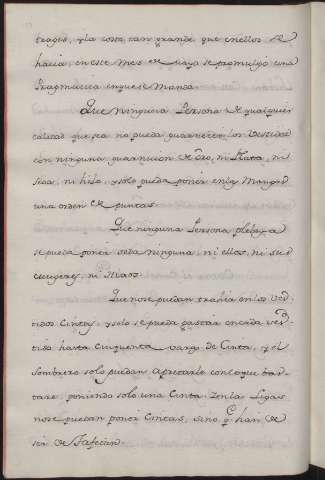 trages, y la costa tan grande que en ellos se
hacia, en este mes de mayo se promulgò una
Pragmatica en que se Manda.
Que ninguna Persona de qualquier
calidad que sea no pueda guarnecer los vestidos
con ninguna guarnicion de Oro, ni Plata, ni
seda, ni hilo, y solo pueda poner en las Mangas
una orden de puntas.
Que ninguna Persona plebeya
se pueda poner seda ninguna, ni ellos, ni sus
mugeres, ni Hijos.
Que no se puedan traher en los Ves-
tidos Cintas, y solo se pueda gastar en cada ves-
tido hasta Cinquenta varas de Cinta, y el
sombrero solo puedan apretarlo con lo que bas-
tare, poniendo solo una Cinta. En las Ligas
no se puedan poner Cintas, sino q han de
ser de Tafetan.